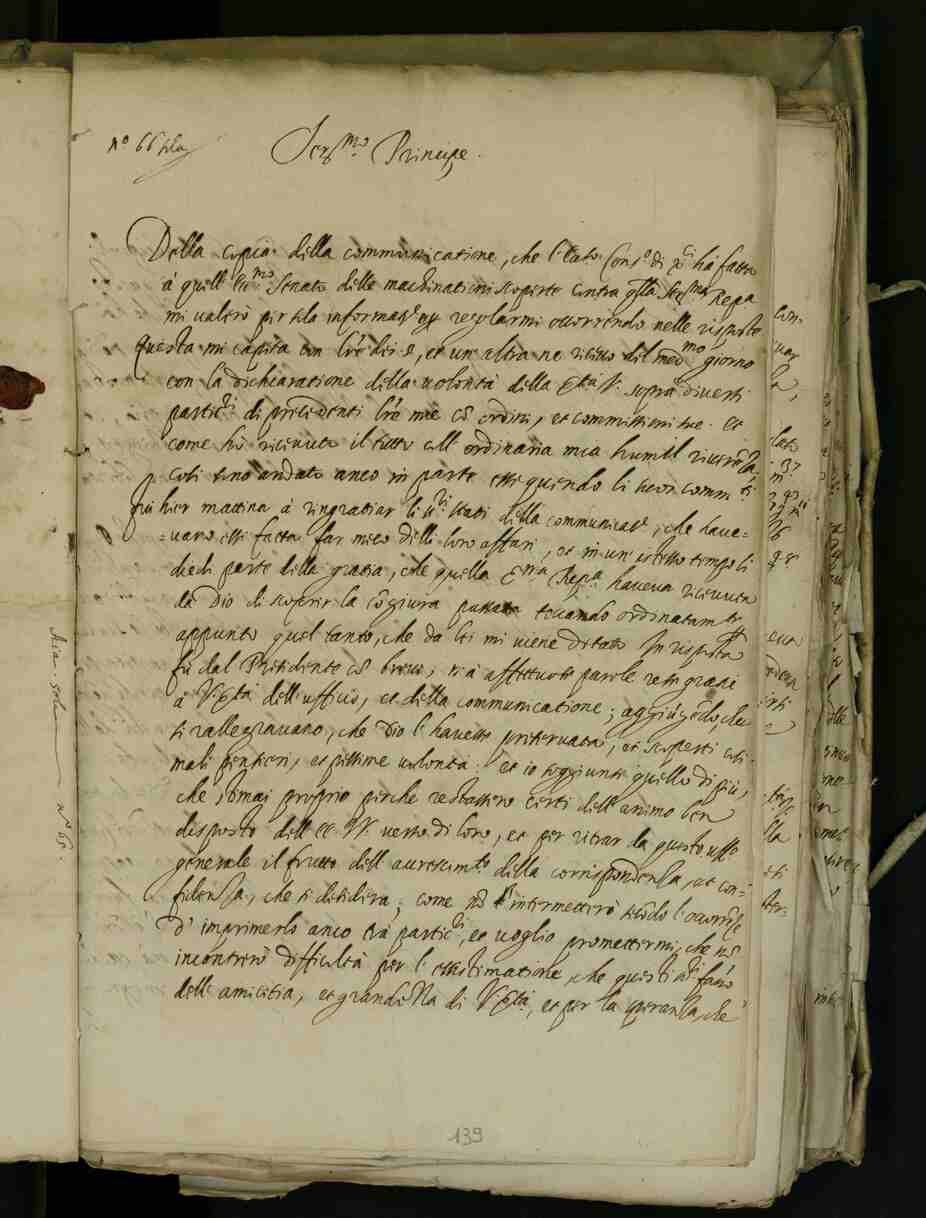 N.o 66 sola
Ser.mo Principe.
Dalla copia della communicatione, che l'Ecc.so Cons.o di X.ci ha fatta
à quell' Ecc.mo Senato delle machinationi scoperte contra q.sta Ser.ma Rep.a
mi valerò per sola informat.ne et regolarmi occorrendo nelle risposte
Questa mi capita con l're di , et un' altra ne ricevo del med.mo giorno
con la dichiaratione della volontà della Ser.tà V. sopra diversi
partic.ri di precedenti l're mie cõ ordini, et commissioni sue. et
come hò ricevuto il tutto coll' ordinaria mia humil riverẽza,
cosi sono andato anco in parte essequendo li suoi comm.ti
fui hier mattina à ringratiar li s.ri stati della communicat.ne, che have=
=vano essi fatta far meco delli loro affari, et in un' istesso tempo li
diedi parte della gratia, che quella Ser.ma Rep.a haveva ricevuta
da Dio di scoprir la cõgiura passata toccando ordinatam.te
appunto quel tanto, che da lei mi viene dettato In risposta
fù dal Presidente cõ brevi, mà affettuose parole rese gratie
à V. Ser.tà dell' ufficio, et della communicatione; aggiũgẽdo, che
si rallegravano, che Dio l' havesse preservata, et scoperti cosi
mali pensieri, et pessime volontà. et io soggiunsi quello di più,
che stimai proprio perche restassero certi dell' animo ben
disposto dell' EE. VV. verso di loro, et per ritrar da questo uff.o
generale il frutto dell' accrescim.to della corrispondenza, et con=
fidenza, che si desidera; come nõ intermetterò secõdo l' occorr.ze
d' imprimerlo anco trà partic.ri, et voglio promettermi, che nõ
incontrerò difficultà per l' essistimatione, che questi s.ri fãno
dell' amicitia, et grandezza di V. Ser.tà, et per la speranza, che
Mia sola n.o 65.
139